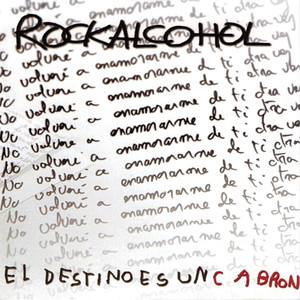 ROCKALCOHOL
volveré a enamorarme de ti otra vez
volveré a enamorarme de ti otra vez
volveré a enamorarme de ti otra ve
No volveré a enamorarme de ti otra ve
No volveré a enamorarme de ti otra v
No volveré a enamorarme de ti otra
No volveré a enamorarme de ti otra
No volveré a enamorarme de ti otra
No volveré a enamorarme de ti otra
No volveré a enamorarme de ti otra
EL DESTINO ES UN CABRON